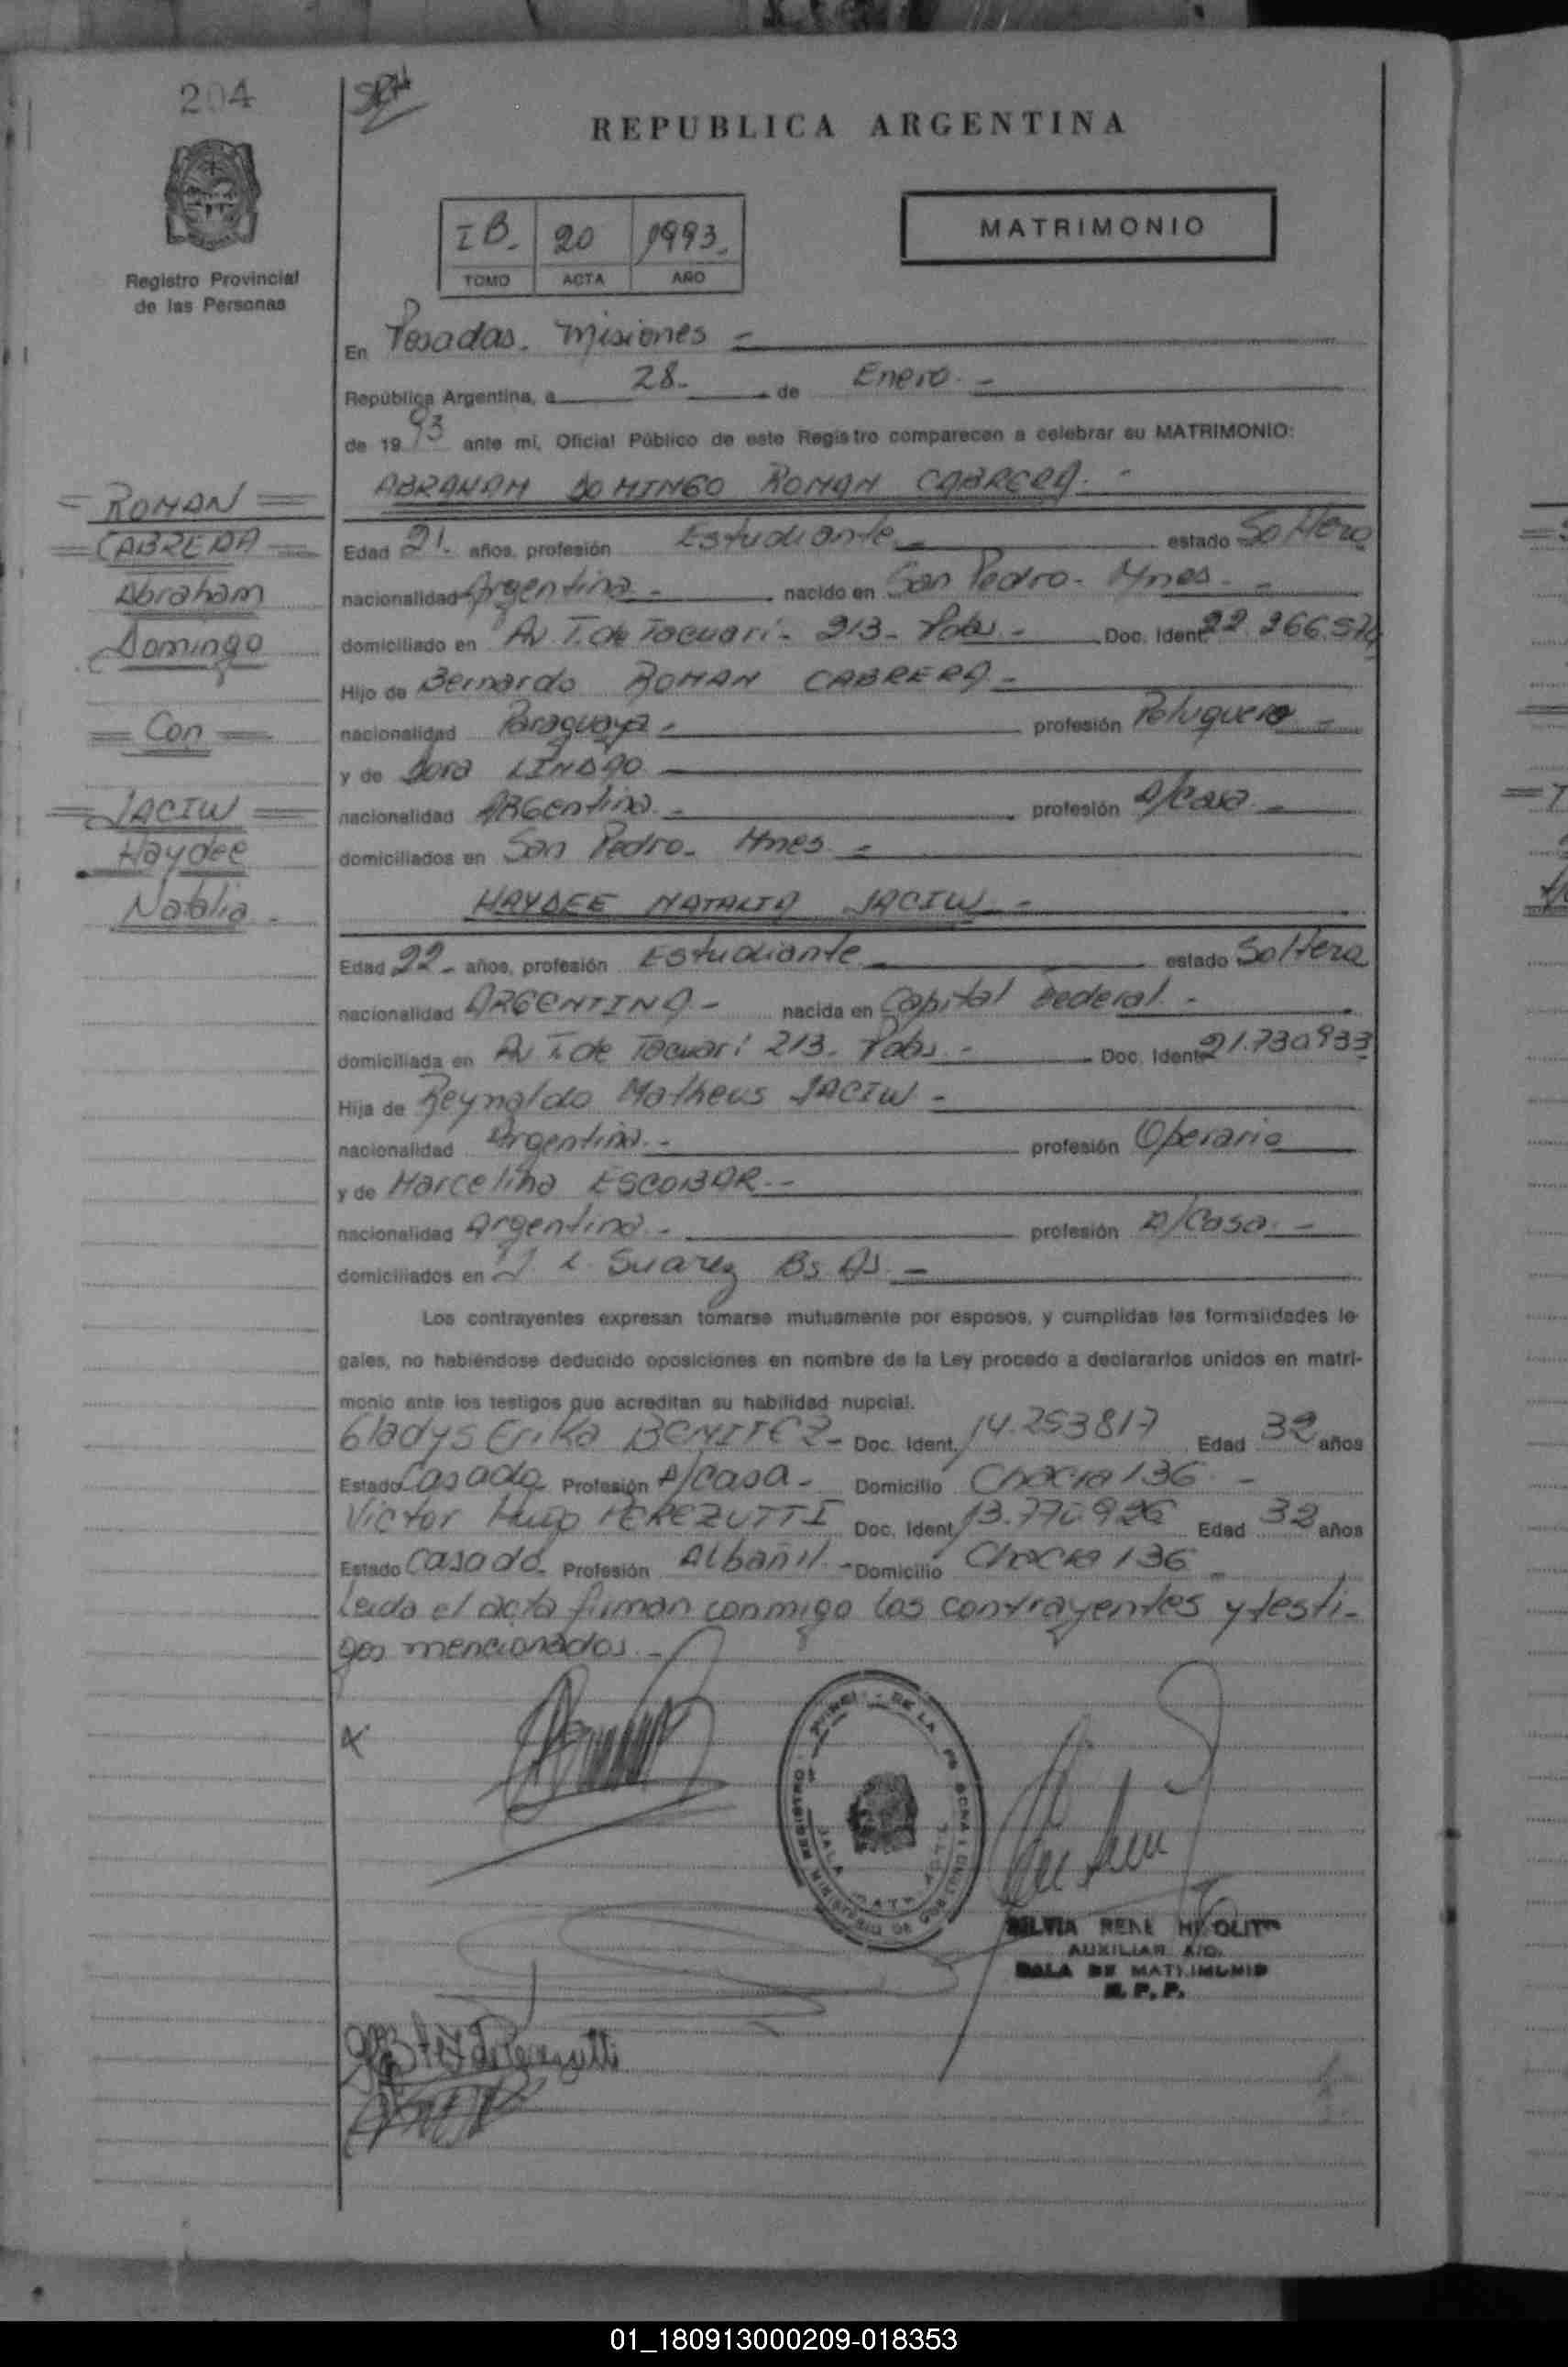 204
REPUBLICA ARGENTINA
Registro Provincial
de las Personas
I B. 20 1993.
TOMO ACTA AÑO
MATRIMONIO
En Posadas. Misiones =
República Argentina, a 28.- de Enero.-
de 1993 ante mi, Oficial Público de este Registro comparecen a celebrar su MATRIMONIO:
ABRAHAM DOMINGO ROMAN CABRERA.-
= ROMAN =
= CABRERA =
Abraham
Domingo
= Con =
= JACIW =
Haydee
Natalia -
Edad 21. años, profesión Estudiante - estado Soltero
nacionalidad Argentina - nacido en San Pedro - Mnes. -
domiciliado en Av T. de Tacuarí - 213 - Pdas - Doc. Ident. 22 266.574
Hijo de Bernardo ROMAN CABRERA -
nacionalidad Paraguaya - profesión Peluquero -
y de Dora LINDAO
nacionalidad ARGentina. - profesión A/Casa -
domiciliados en San Pedro - Mnes =
HAYDEE NATALIA JACIW -
Edad 22 - años, profesión Estudiante - estado Soltera
nacionalidad ARGENTINA - nacida en Capital Federal -
domiciliada en Av T. de Tacuarí 213. Pdas. - Doc. Ident. 21.730.933
Hija de Reynaldo Matheus JACIW -
nacionalidad Argentina. - profesión Operario
y de Marcelina ESCOBAR. -
nacionalidad Argentina - profesión A/Casa. -
domiciliados en J. L. Suarez Bs As -
Los contrayentes expresan tomarse mutuamente por esposos, y cumplidas las formalidades le-
gales, no habiéndose deducido oposiciones en nombre de la Ley procedo a declararlos unidos en matri-
monio ante los testigos que acreditan su habilidad nupcial.
Gladys Erika BENITEZ - Doc. Ident. 14.253817 Edad 32 años
Estado Casada Profesión A/casa - Domicilio Chacra 136 -
Victor Hugo PEREZUTTI Doc. Ident. 13.770926 Edad 32 años
Estado Casado. Profesión Albañil - Domicilio Chacra 136
Leida el acta firman conmigo los contrayentes y testi-
gos mencionados. -
AUXILIAR A/C.
SALA DE MATRIMONIO
R. P. P.
01_180913000209-018353